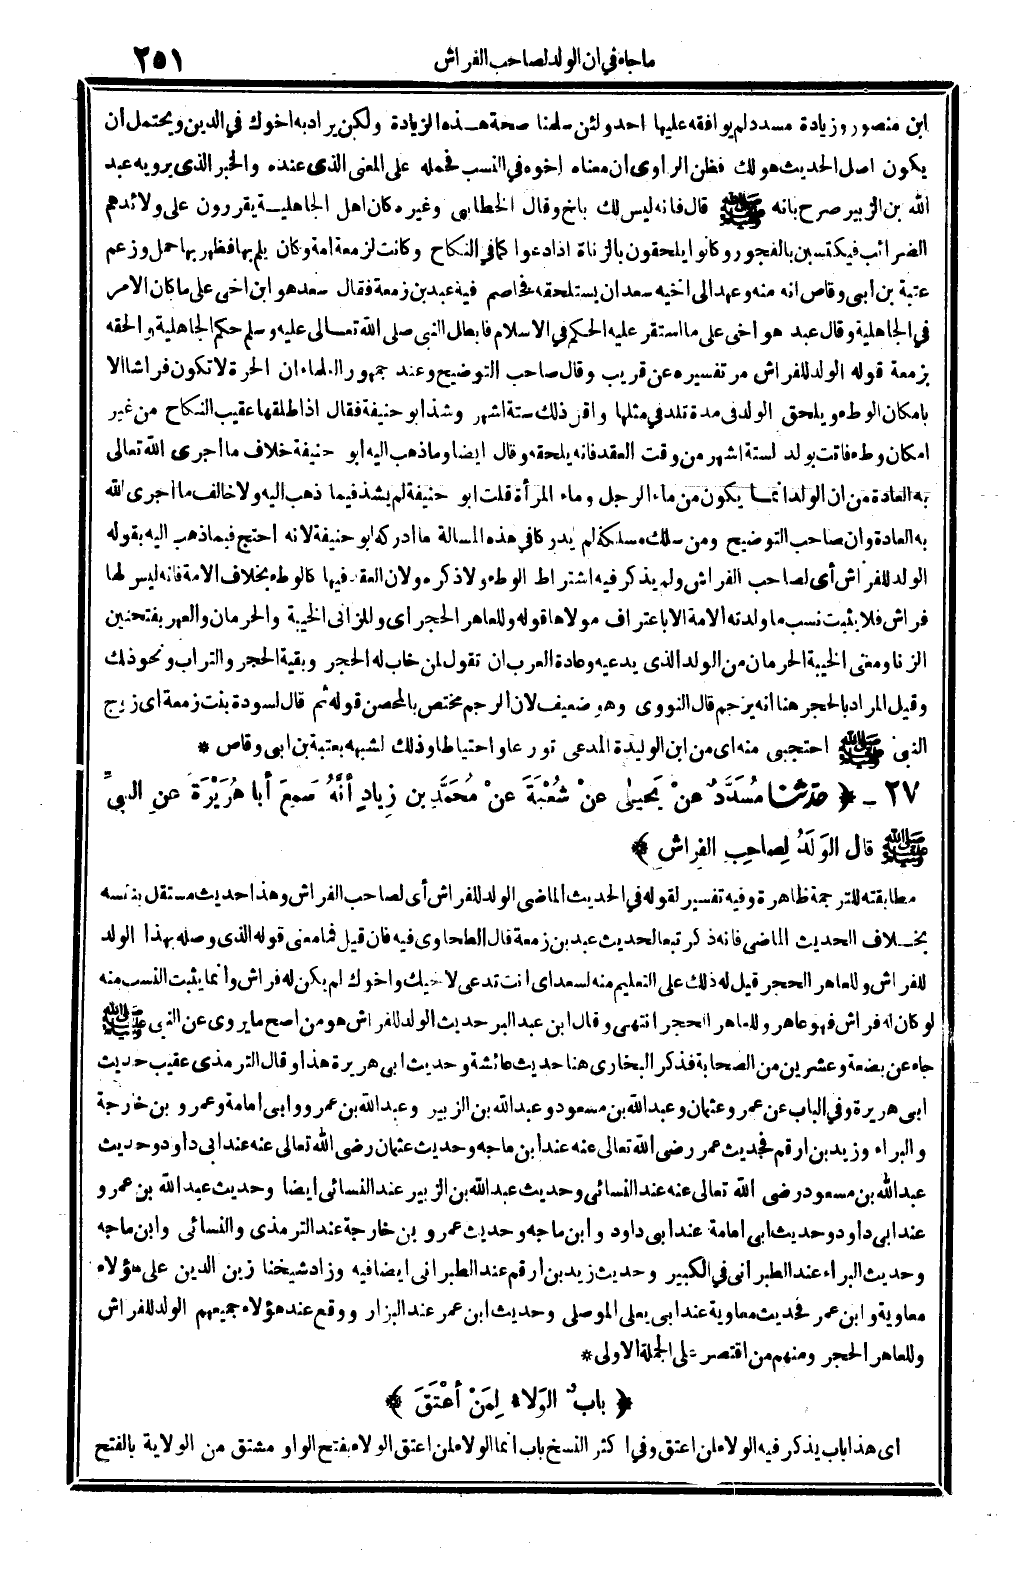 ما جاء في ان الولد لصاحب الفراش ٢٥١
ابن منصور وزيادة مسدد لم يوافقه عليها احد ولئن سلمنا صحة هذه الزيادة ولكن يراد به اخوك في الدين ويحتمل أن
يكون اصل الحديث هو لك فظن الراوى أن معناه اخوه في النسب فحمله على المعنى الذى عنده والخبر الذى يرويه عبد
الله بن الزبير صرح بانه ﷺ قال فانه ليس لك باخ وقال الخطابي وغيره كان اهل الجاهلية يقررون على ولائدهم
الضرائب فيكتسبن بالفجور وكانوا يلحقون بالزناة اذا دعوا كما في النكاح وكانت لزمعة امة وكان يلم بها فظهر بها حمل وزعم
عتبة بن ابى وقاص انه منه وعهد الى اخيه سعد ان يستلحقه فخاصم فيه عبد بن زمعة فقال سعد هو ابن اخى على ما كان الامر
في الجاهلية وقال عبد هو اخى على ما استقر عليه الحكم في الاسلام فابطل النبي صلى الله تعالى عليه وسلم حكم الجاهلية والحقه
بزمعة قوله الولد للفراش مر تفسيره عن قريب وقال صاحب التوضيح وعند جمهور العلماء ان الحرة لا تكون فراشا الا
بامكان الوطء ويلحق الولد في مدة تلد في مثلها واقل ذلك ستة اشهر وشذ ابو حنيفة فقال اذا طلقها عقيب النكاح من غير
امكان وطء فاتت بولد لستة اشهر من وقت العقد فانه يلحقه وقال ايضا وما ذهب اليه ابو حنيفة خلاف ما اجرى الله تعالى
به العادة من ان الولد انما يكون من ماء الرجل وماء المرأة قلت ابو حنيفة لم يشذ فيما ذهب اليه ولا خالف ما اجرى الله
به العادة وان صاحب التوضيح ومن سلك مسلكه لم يدركا في هذه المسالة ما ادركه ابو حنيفة لانه احتج فيما ذهب اليه بقوله
الولد للفراش أى لصاحب الفراش ولم يذكر فيه اشتراط الوطء ولا ذكره ولان العقد فيها كالوطء بخلاف الامة فانه ليس لها
فراش فلا يثبت نسب ما ولدته الامة الا باعتراف مولاها قوله وللعاهر الحجر اى وللزانى الخيبة والحرمان والعهر بفتحتين
الزنا ومعنى الخيبة الحرمان من الولد الذى يدعيه وعادة العرب ان تقول لمن خاب له الحجر وبقية الحجر والتراب ونحو ذلك
وقيل المراد بالحجر هنا انه يرجم قال النووى وهو ضعيف لان الرجم مختص بالمحصن قوله ثم قال لسودة بنت زمعة اى زوج
النبي ﷺ احتجبى منه اى من ابن الوليدة المدعى تورعا واحتياطا وذلك لشبهه بعتبة بن ابى وقاص *
٢٧ - ﴿ حدثنا مُسَدَّدٌ عنْ يَحيىٰ عنْ شُعْبَةَ عنْ مُحَمَّدِ بن زِيادٍ أنَّهُ سَمِعَ أبا هُرَيْرَةَ عنِ النبيِّ
ﷺ قال الوَلَدُ لِصاحِبِ الفِراشِ ﴾
مطابقته للترجمة ظاهرة وفيه تفسير لقوله في الحديث الماضى الولد للفراش أى لصاحب الفراش وهذا حديث مستقل بنفسه
بخلاف الحديث الماضى فانه ذكر تبعا لحديث عبد بن زمعة قال الطحاوى فيه فان قيل فما معنى قوله الذى وصله بهذا الولد
للفراش وللعاهر الحجر قيل له ذلك على التعليم منه لسعد اى انت تدعى لاخيك واخوك لم يكن له فراش وانما يثبت النسب منه
لو كان له فراش فهو عاهر وللعاهر الحجر انتهى وقال ابن عبد البر حديث الولد للفراش هو من اصح ما يروى عن النبي ﷺ
جاء عن بضعة وعشرين من الصحابة فذكر البخارى هنا حديث عائشة وحديث ابى هريرة هذا وقال الترمذى عقيب حديث
ابى هريرة وفي الباب عن عمر وعثمان وعبد الله بن مسعود وعبد الله بن الزبير وعبد الله بن عمرو وابى امامة وعمرو بن خارجة
والبراء وزيد بن ارقم فحديث عمر رضى الله تعالى عنه عند ابن ماجه وحديث عثمان رضى الله تعالى عنه عند ابى داود وحديث
عبد الله بن مسعود رضى الله تعالى عنه عند النسائى وحديث عبد الله بن الزبير عند النسائى ايضا وحديث عبد الله بن عمرو
عند ابى داود وحديث ابى امامة عند ابى داود وابن ماجه وحديث عمرو بن خارجة عند الترمذى والنسائى وابن ماجه
وحديث البراء عند الطبرانى في الكبير وحديث زيد بن ارقم عند الطبرانى ايضا فيه وزاد شيخنا زين الدين على هؤلاء
معاوية وابن عمر فحديث معاوية عند ابى يعلى الموصلى وحديث ابن عمر عند البزار ووقع عند هؤلاء جميعهم الولد للفراش
وللعاهر الحجر ومنهم من اقتصر على الجملة الاولى *
﴿ بابٌ الوَلاءُ لِمَنْ أعْتَقَ ﴾
اى هذا باب يذكر فيه الولاء لمن اعتق وفي اكثر النسخ باب انما الولاء لمن اعتق الولاء بفتح الواو مشتق من الولاية بالفتح